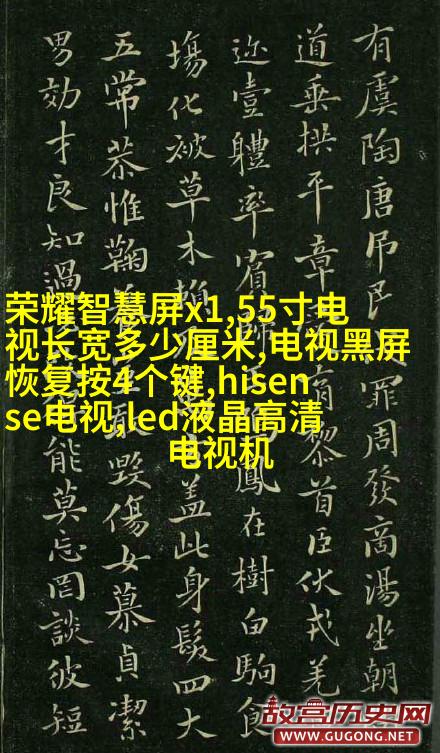 有虞陶唐吊民罪周發商湯坐朝
道垂拱平章育黎首臣伏戎羌
迩壹體率賓歸鳳在樹白駒食
場化被草木賴蓋此身髮四大
五常恭惟鞠養敢毀傷女慕貞潔
男効才良知過能莫忘罔談彼短
荣耀智慧屏x1,55寸电
视长宽多少厘米,电视黑屏
恢复按4个键,hisen
se电视,led液晶高清
电视机
故宫历史网
WWW.GUGONG.NET